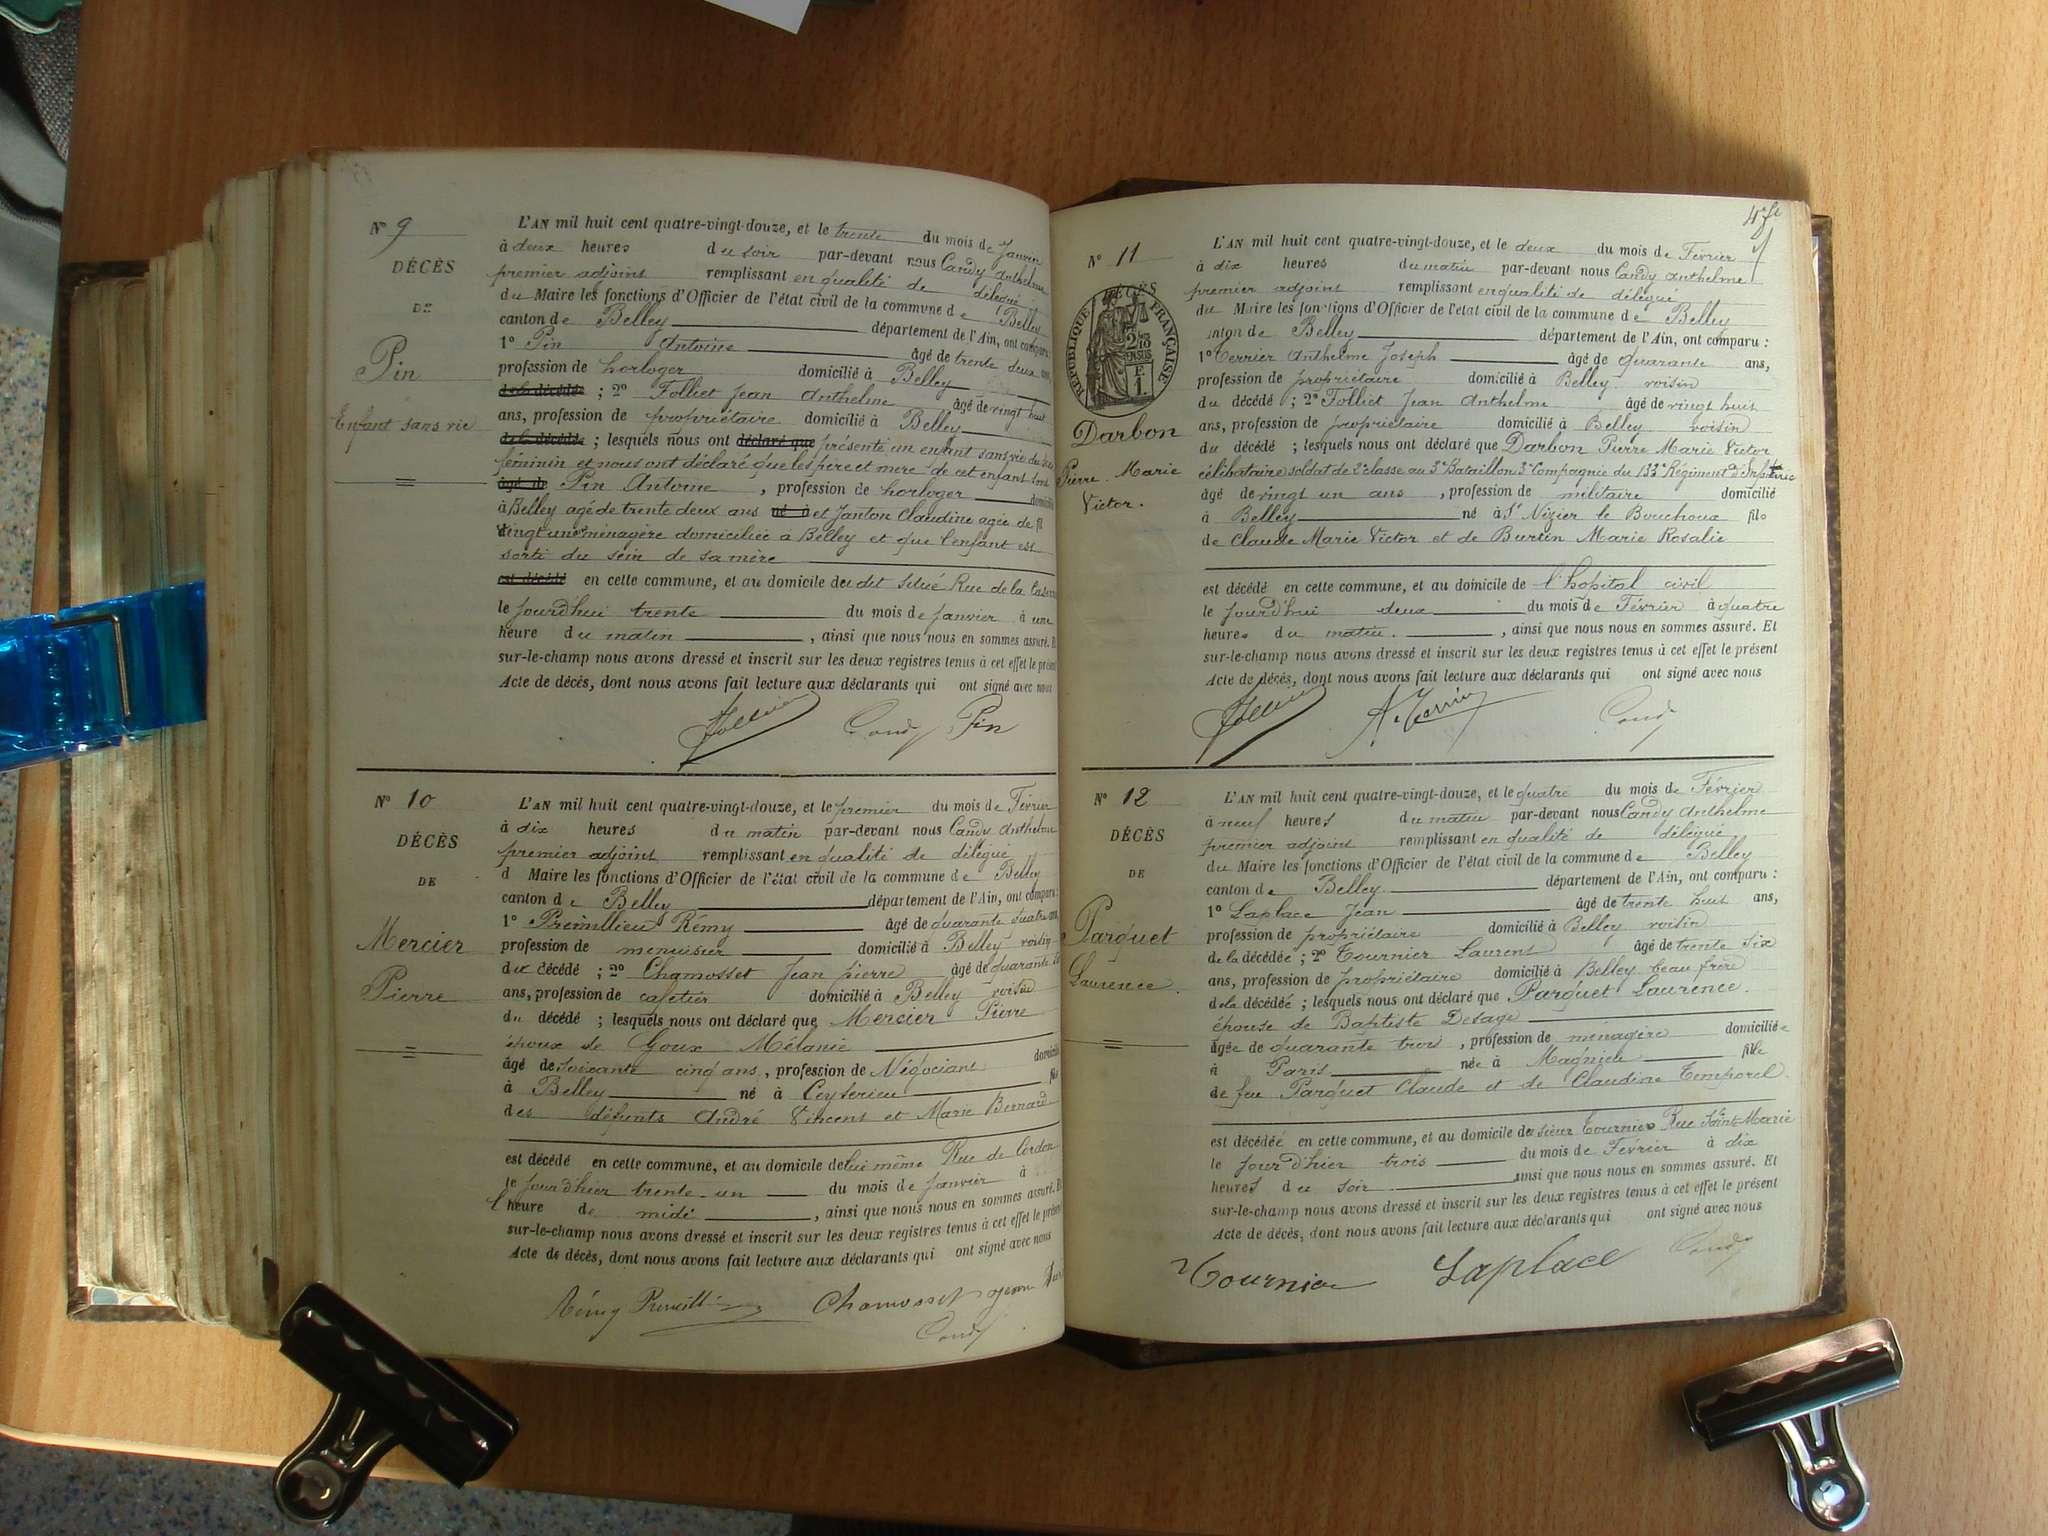 N° 9
DÉCÈS
DE
Pin
Enfant sans vie
L'AN mil huit cent quatre-vingt-douze, et le trente du mois de Janvier
à deux heures du soir par-devant nous Candy Anthelme
premier adjoint remplissant en qualité de délégué
du Maire les fonctions d'Officier de l'état civil de la commune de Belley
canton de Belley département de l'Ain, ont comparu :
1° Pin Antoine âgé de trente deux ans,
profession de horloger domicilié à Belley
de la décédée ; 2° Folliet Jean Anthelme âgé de vingt huit
ans, profession de propriétaire domicilié à Belley
de la décédée ; lesquels nous ont déclaré que présenté un enfant sans vie du sexe
féminin et nous ont déclaré que les père et mère de cet enfant sont
âgé de Pin Antoine, profession de horloger domicilié
à Belley agé de trente deux ans né à et Janton Claudine agée de fil
vingt une ménagère domiciliée à Belley et que l'enfant est
sorti du sein de sa mère
est décédé en cette commune, et au domicile du dit situé Rue de la Caserne
le jourd'hui trente du mois de Janvier à une
heure du matin, ainsi que nous nous en sommes assuré. Et
sur-le-champ nous avons dressé et inscrit sur les deux registres tenus à cet effet le présent
Acte de décès, dont nous avons fait lecture aux déclarants qui ont signé avec nous
Folliet Candy Pin
N° 10
DÉCÈS
DE
Mercier
Pierre
L'AN mil huit cent quatre-vingt-douze, et le premier du mois de Février
à dix heures du matin par-devant nous Candy Anthelme
premier adjoint remplissant en qualité de délégué
d Maire les fonctions d'Officier de l'état civil de la commune de Belley
canton de Belley département de l'Ain, ont comparu :
1° Premillieu Rémy âgé de quarante quatre ans,
profession de menuisier domicilié à Belley voisin
du décédé ; 2° Chamosset Jean pierre âgé de quarante
ans, profession de cafetier domicilié à Belley voisin
du décédé ; lesquels nous ont déclaré que Mercier Pierre
époux de Goux Mélanie
âgé de soixante cinq ans, profession de Négociant domicilié
à Belley né à Ceyzerieu fils
des défunts André Vincent et Marie Bernard
est décédé en cette commune, et au domicile de lui même Rue de Cordon
le jourd'hier trente un du mois de Janvier à
l'heure de midi, ainsi que nous nous en sommes assuré. Et
sur-le-champ nous avons dressé et inscrit sur les deux registres tenus à cet effet le présent
Acte de décès, dont nous avons fait lecture aux déclarants qui ont signé avec nous
Rémy Premilli Chamosset
Candy
N° 11
DÉCÈS
RÉPUBLIQUE FRANÇAISE
Darbon
Pierre Marie
Victor.
L'AN mil huit cent quatre-vingt-douze, et le deux du mois de Février
à dix heures du matin par-devant nous Candy Anthelme
premier adjoint remplissant en qualité de délégué
du Maire les fonctions d'Officier de l'état civil de la commune de Belley
canton de Belley département de l'Ain, ont comparu :
1° Terrier Anthelme Joseph âgé de quarante ans,
profession de propriétaire domicilié à Belley voisin
du décédé ; 2° Folliet Jean Anthelme âgé de vingt huit
ans, profession de propriétaire domicilié à Belley voisin
du décédé ; lesquels nous ont déclaré que Darbon Pierre Marie Victor
célibataire soldat de 2e classe au 3e Bataillon 3e Compagnie du 133e Régiment d'Infanterie
âgé de vingt un ans, profession de militaire domicilié
à Belley né à St Nizier le Bouchoux fils
de Claude Marie Victor et de Burtin Marie Rosalie
est décédé en cette commune, et au domicile de l'hopital civil
le jourd'hui deux du mois de Février à quatre
heures du matin, ainsi que nous nous en sommes assuré. Et
sur-le-champ nous avons dressé et inscrit sur les deux registres tenus à cet effet le présent
Acte de décès, dont nous avons fait lecture aux déclarants qui ont signé avec nous
Folliet A. Terrier Candy
N° 12
DÉCÈS
DE
Parquet
Laurence.
L'AN mil huit cent quatre-vingt-douze, et le quatre du mois de Février
à neuf heures du matin par-devant nous Candy Anthelme
premier adjoint remplissant en qualité de délégué
du Maire les fonctions d'Officier de l'état civil de la commune de Belley
canton de Belley département de l'Ain, ont comparu :
1° Laplace Jean âgé de trente huit ans,
profession de propriétaire domicilié à Belley voisin
de la décédée ; 2° Tournier Laurent âgé de trente six
ans, profession de propriétaire domicilié à Belley beau frère
de la décédée ; lesquels nous ont déclaré que Parquet Laurence
épouse de Baptiste Desage
âgée de quarante trois, profession de ménagère domiciliée
à Paris née à Magnieu fille
de feu Parquet Claude et de Claudine Temporel
est décédée en cette commune, et au domicile du sieur Tournier Rue Sainte Marie
le jourd'hier trois du mois de Février à dix
heures du soir ainsi que nous nous en sommes assuré. Et
sur-le-champ nous avons dressé et inscrit sur les deux registres tenus à cet effet le présent
Acte de décès, dont nous avons fait lecture aux déclarants qui ont signé avec nous
Tournier Laplace Candy